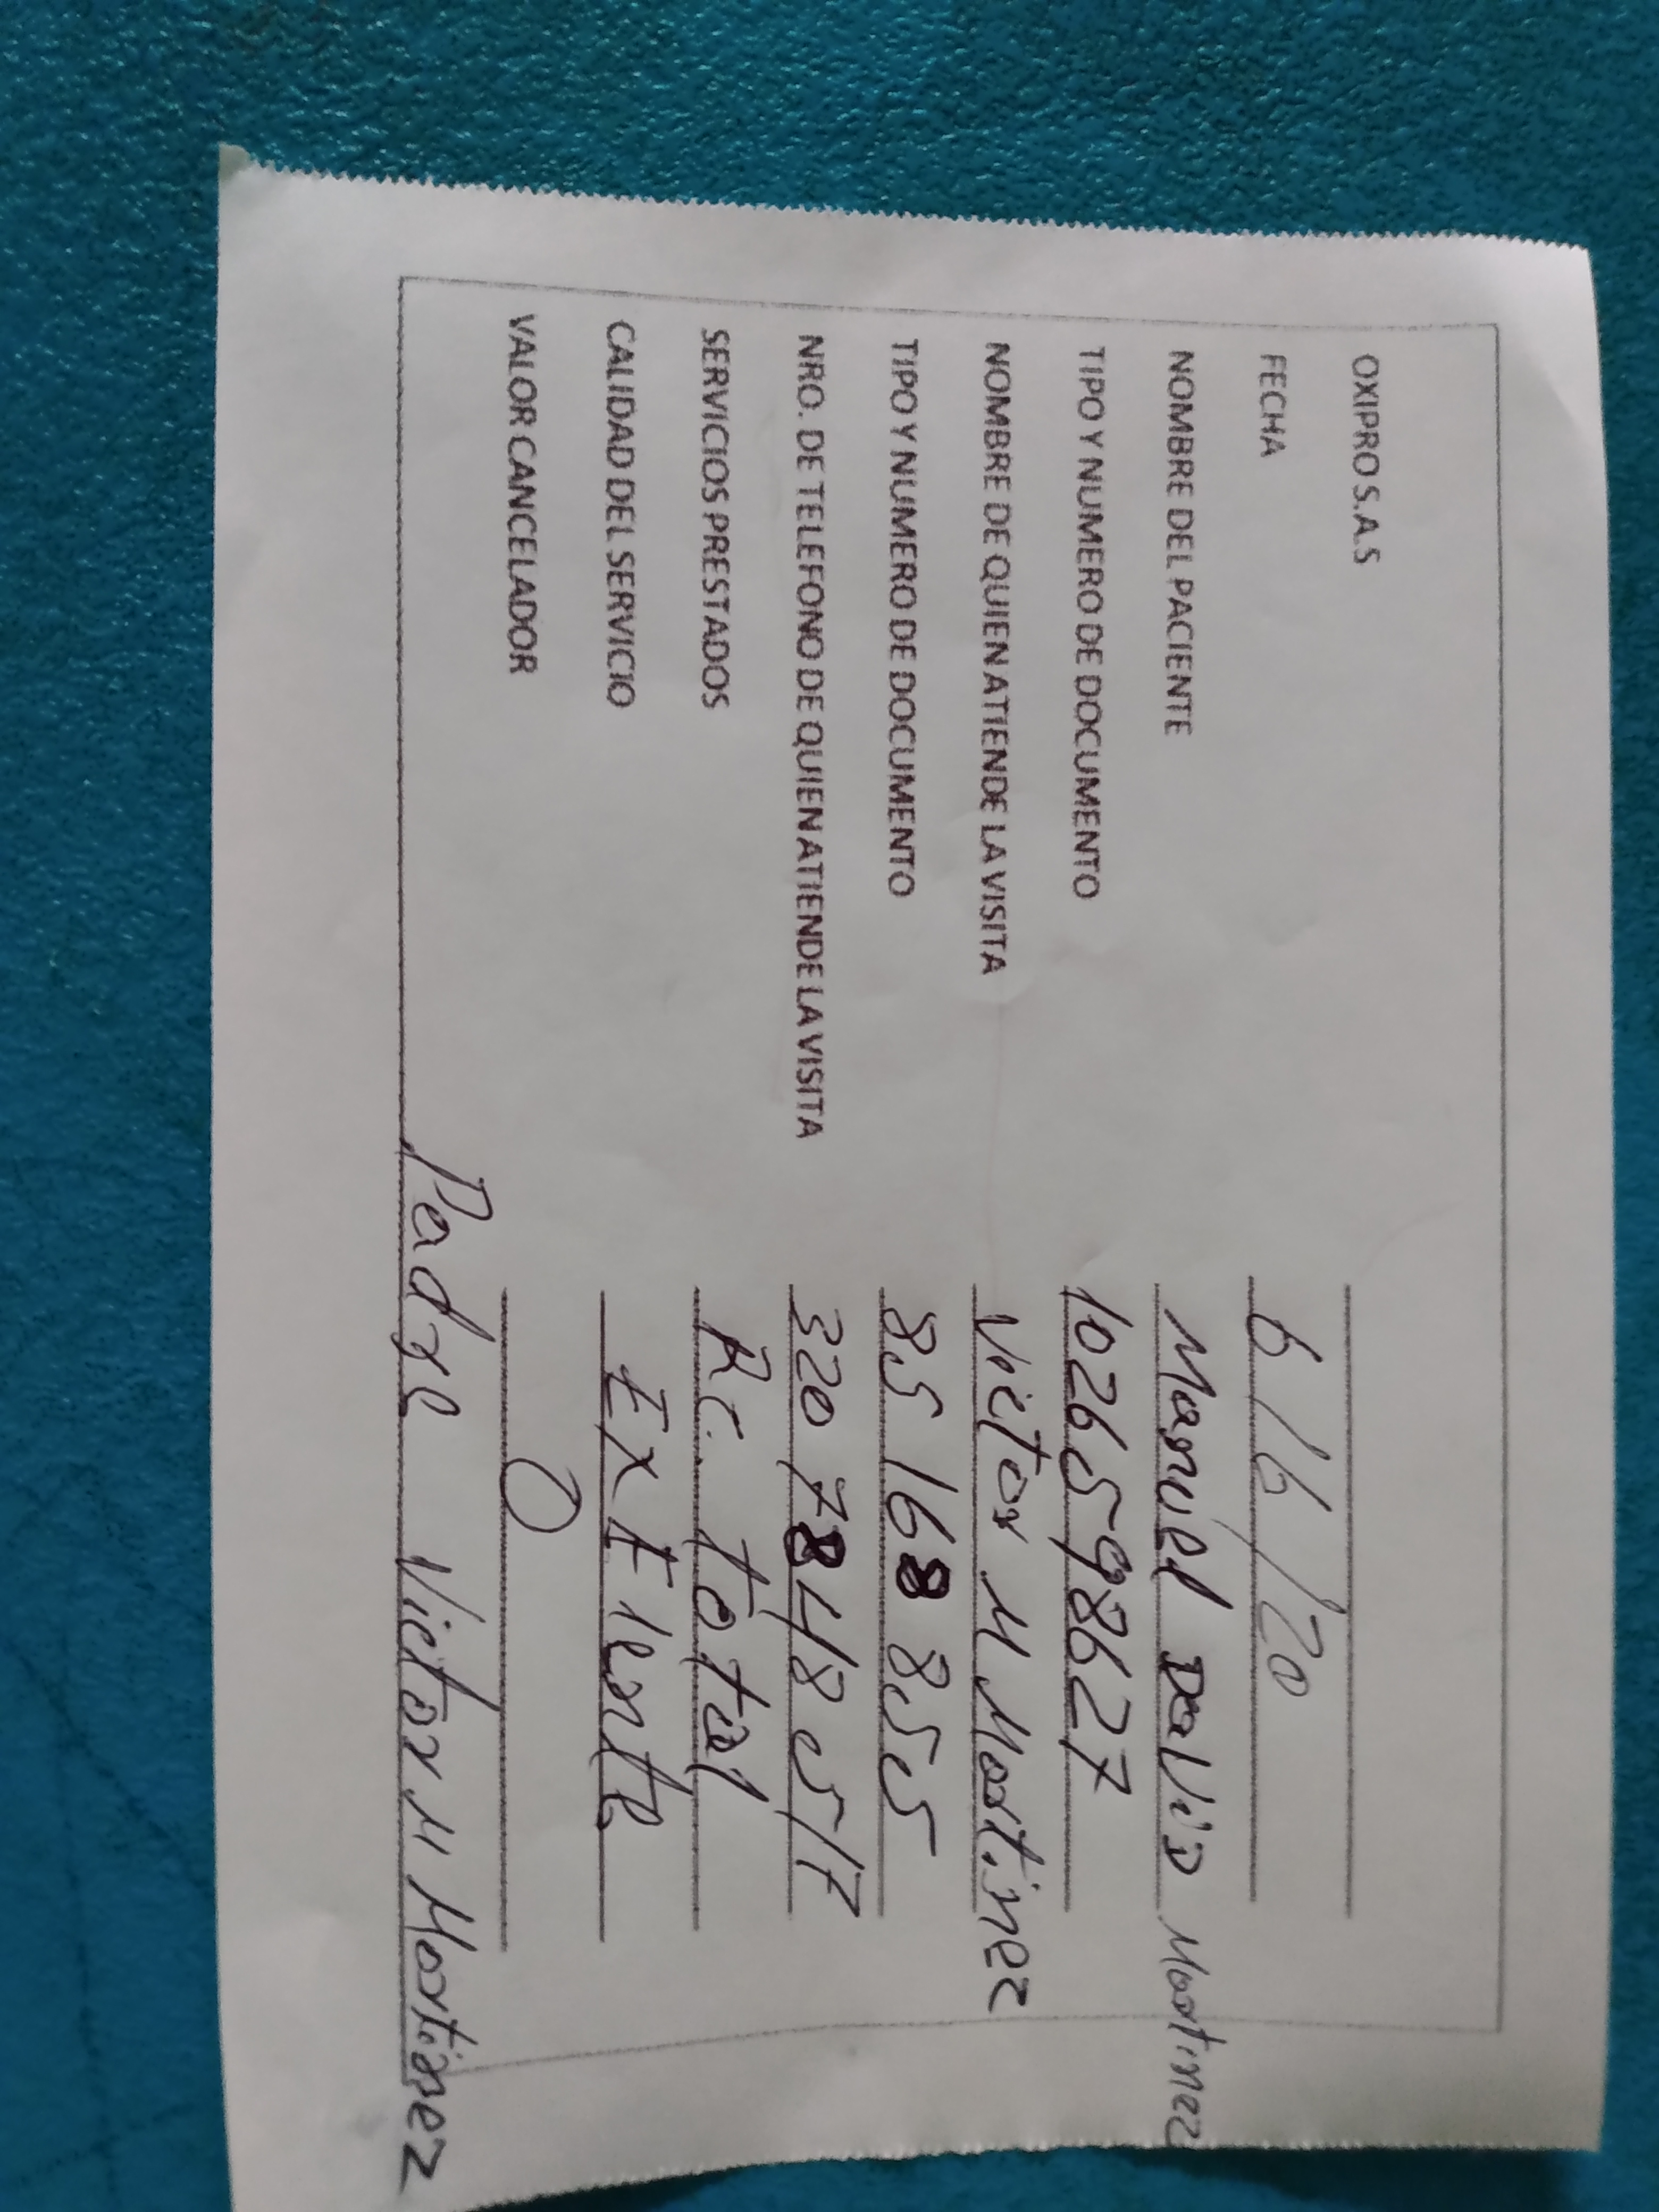 OXIPRO S.A.S
FECHA 6/16/20
NOMBRE DEL PACIENTE Manuel DaviD Martinez
TIPO Y NUMERO DE DOCUMENTO 1026598627
NOMBRE DE QUIEN ATIENDE LA VISITA Victor M Martinez
TIPO Y NUMERO DE DOCUMENTO 85 168 855
NRO. DE TELEFONO DE QUIEN ATIENDE LA VISITA 320 7848517
SERVICIOS PRESTADOS Rc. total
CALIDAD DEL SERVICIO ExElente
VALOR CANCELADOR 0
Padre Victor M Martinez